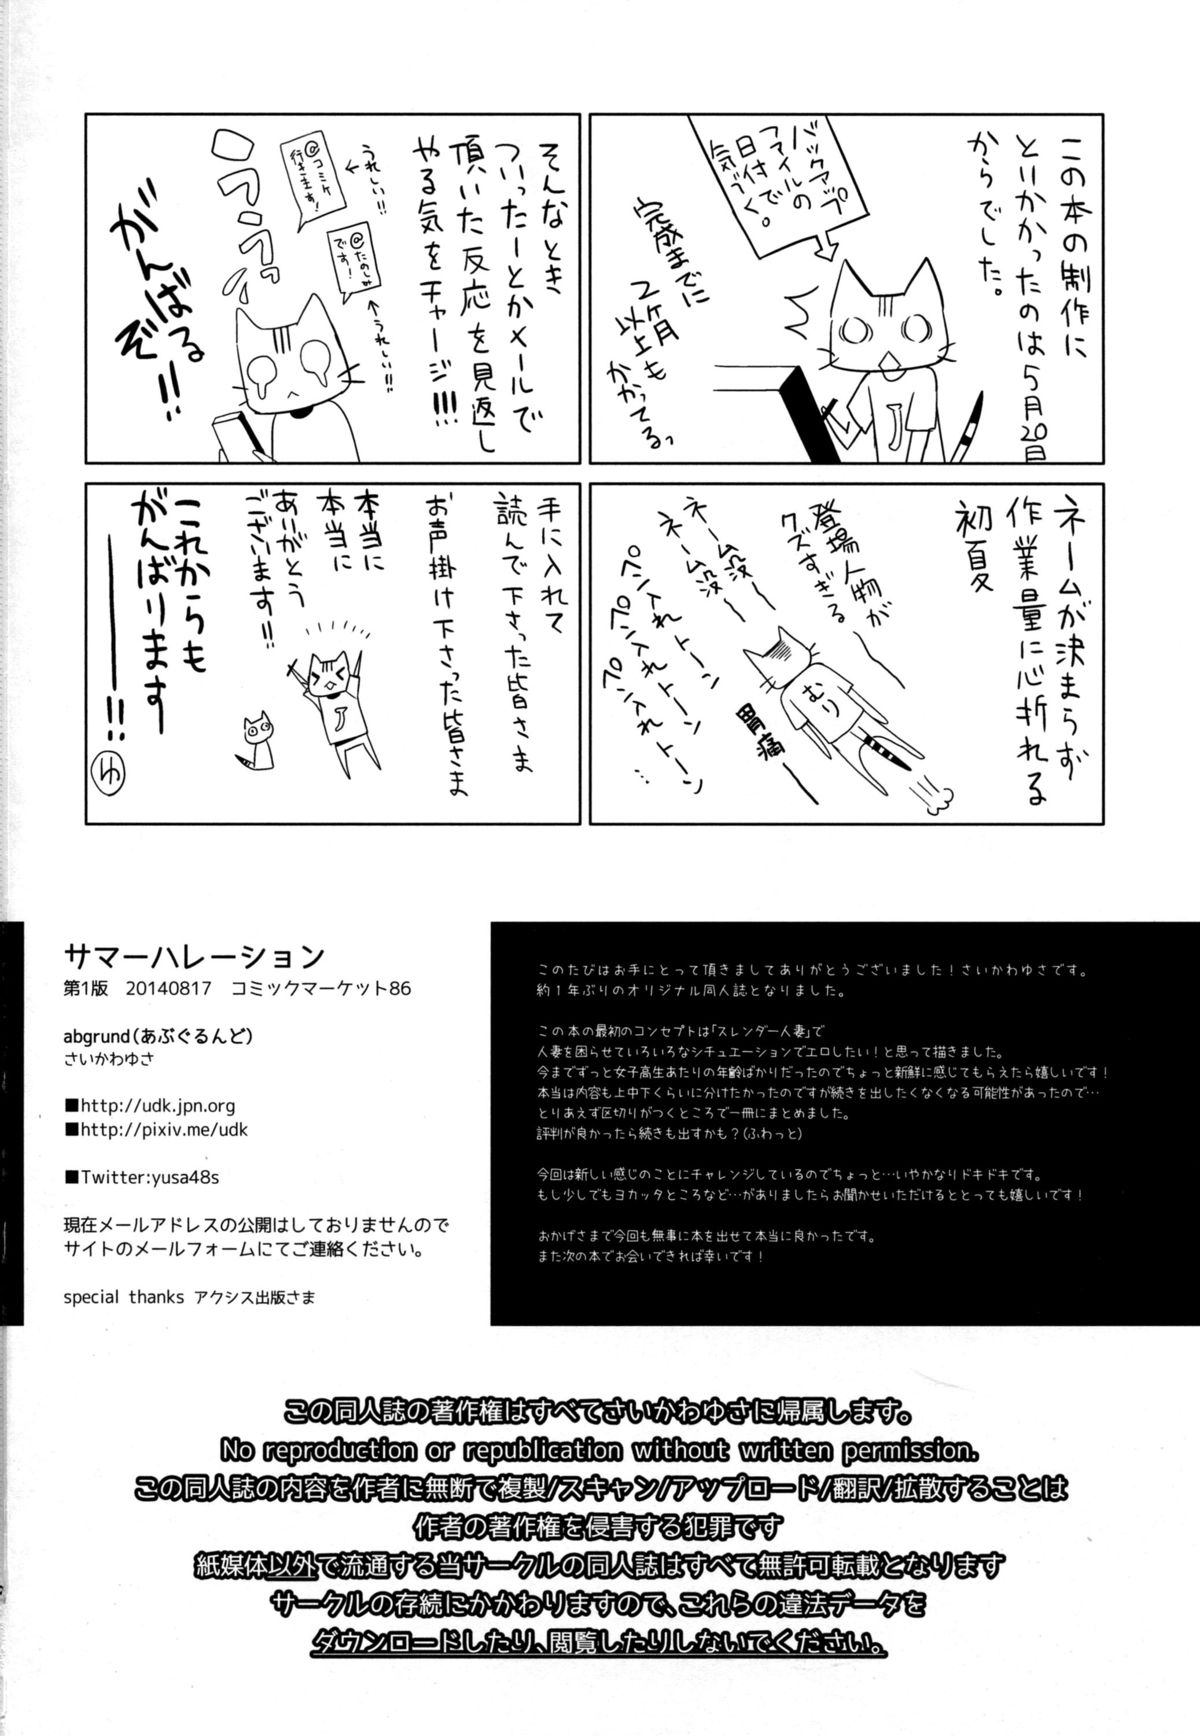 この本の制作に
とりかかったのは5月20日
からでした。
バックアップ
ファイルの
日付で
気づく。
完成までに
2ヶ月
以上も
かかってるっ
そんなとき
ついったーとかメールで
頂いた反応を見返し
やる気をチャージ!!!
うれしい!!
@コミケ
行きます!
@たのしみ
です!
うれしい!!
がんばる
ぞ!!
ネームが決まらず
作業量に心折れる
初夏
登場人物が
クズすぎる
ネーム没ー
ネーム没ー
ペン入れトーン
ペン入れトーン
ペン入れトーン
むり
胃痛ー
手に入れて
読んで下さった皆さま
お声掛け下さった皆さま
本当に
本当に
ありがとう
ございます!!
これからも
がんばります
ーー!!
ゆ
サマーハレーション
第1版 20140817 コミックマーケット86
abgrund(あぶぐるんど)
さいかわゆさ
■http://udk.jpn.org
■http://pixiv.me/udk
■Twitter:yusa48s
現在メールアドレスの公開はしておりませんので
サイトのメールフォームにてご連絡ください。
special thanks アクシス出版さま
このたびはお手にとって頂きましてありがとうございました!さいかわゆさです。
約1年ぶりのオリジナル同人誌となりました。
この本の最初のコンセプトは「スレンダー人妻」で
人妻を困らせていろいろなシチュエーションでエロしたい!と思って描きました。
今までずっと女子高生あたりの年齢ばかりだったのでちょっと新鮮に感じてもらえたら嬉しいです!
本当は内容も上中下くらいに分けたかったのですが続きを出したくなくなる可能性があったので…
とりあえず区切りがつくところで一冊にまとめました。
評判が良かったら続きも出すかも?(ふわっと)
今回は新しい感じのことにチャレンジしているのでちょっと…いやかなりドキドキです。
もし少しでもヨカッタところなど…がありましたらお聞かせいただけるととっても嬉しいです!
おかげさまで今回も無事に本を出せて本当に良かったです。
また次の本でお会いできれば幸いです!
この同人誌の著作権はすべてさいかわゆさに帰属します。
No reproduction or republication without written permission.
この同人誌の内容を作者に無断で複製/スキャン/アップロード/翻訳/拡散することは
作者の著作権を侵害する犯罪です
紙媒体以外で流通する当サークルの同人誌はすべて無許可転載となります
サークルの存続にかかわりますので、これらの違法データを
ダウンロードしたり、閲覧したりしないでください。